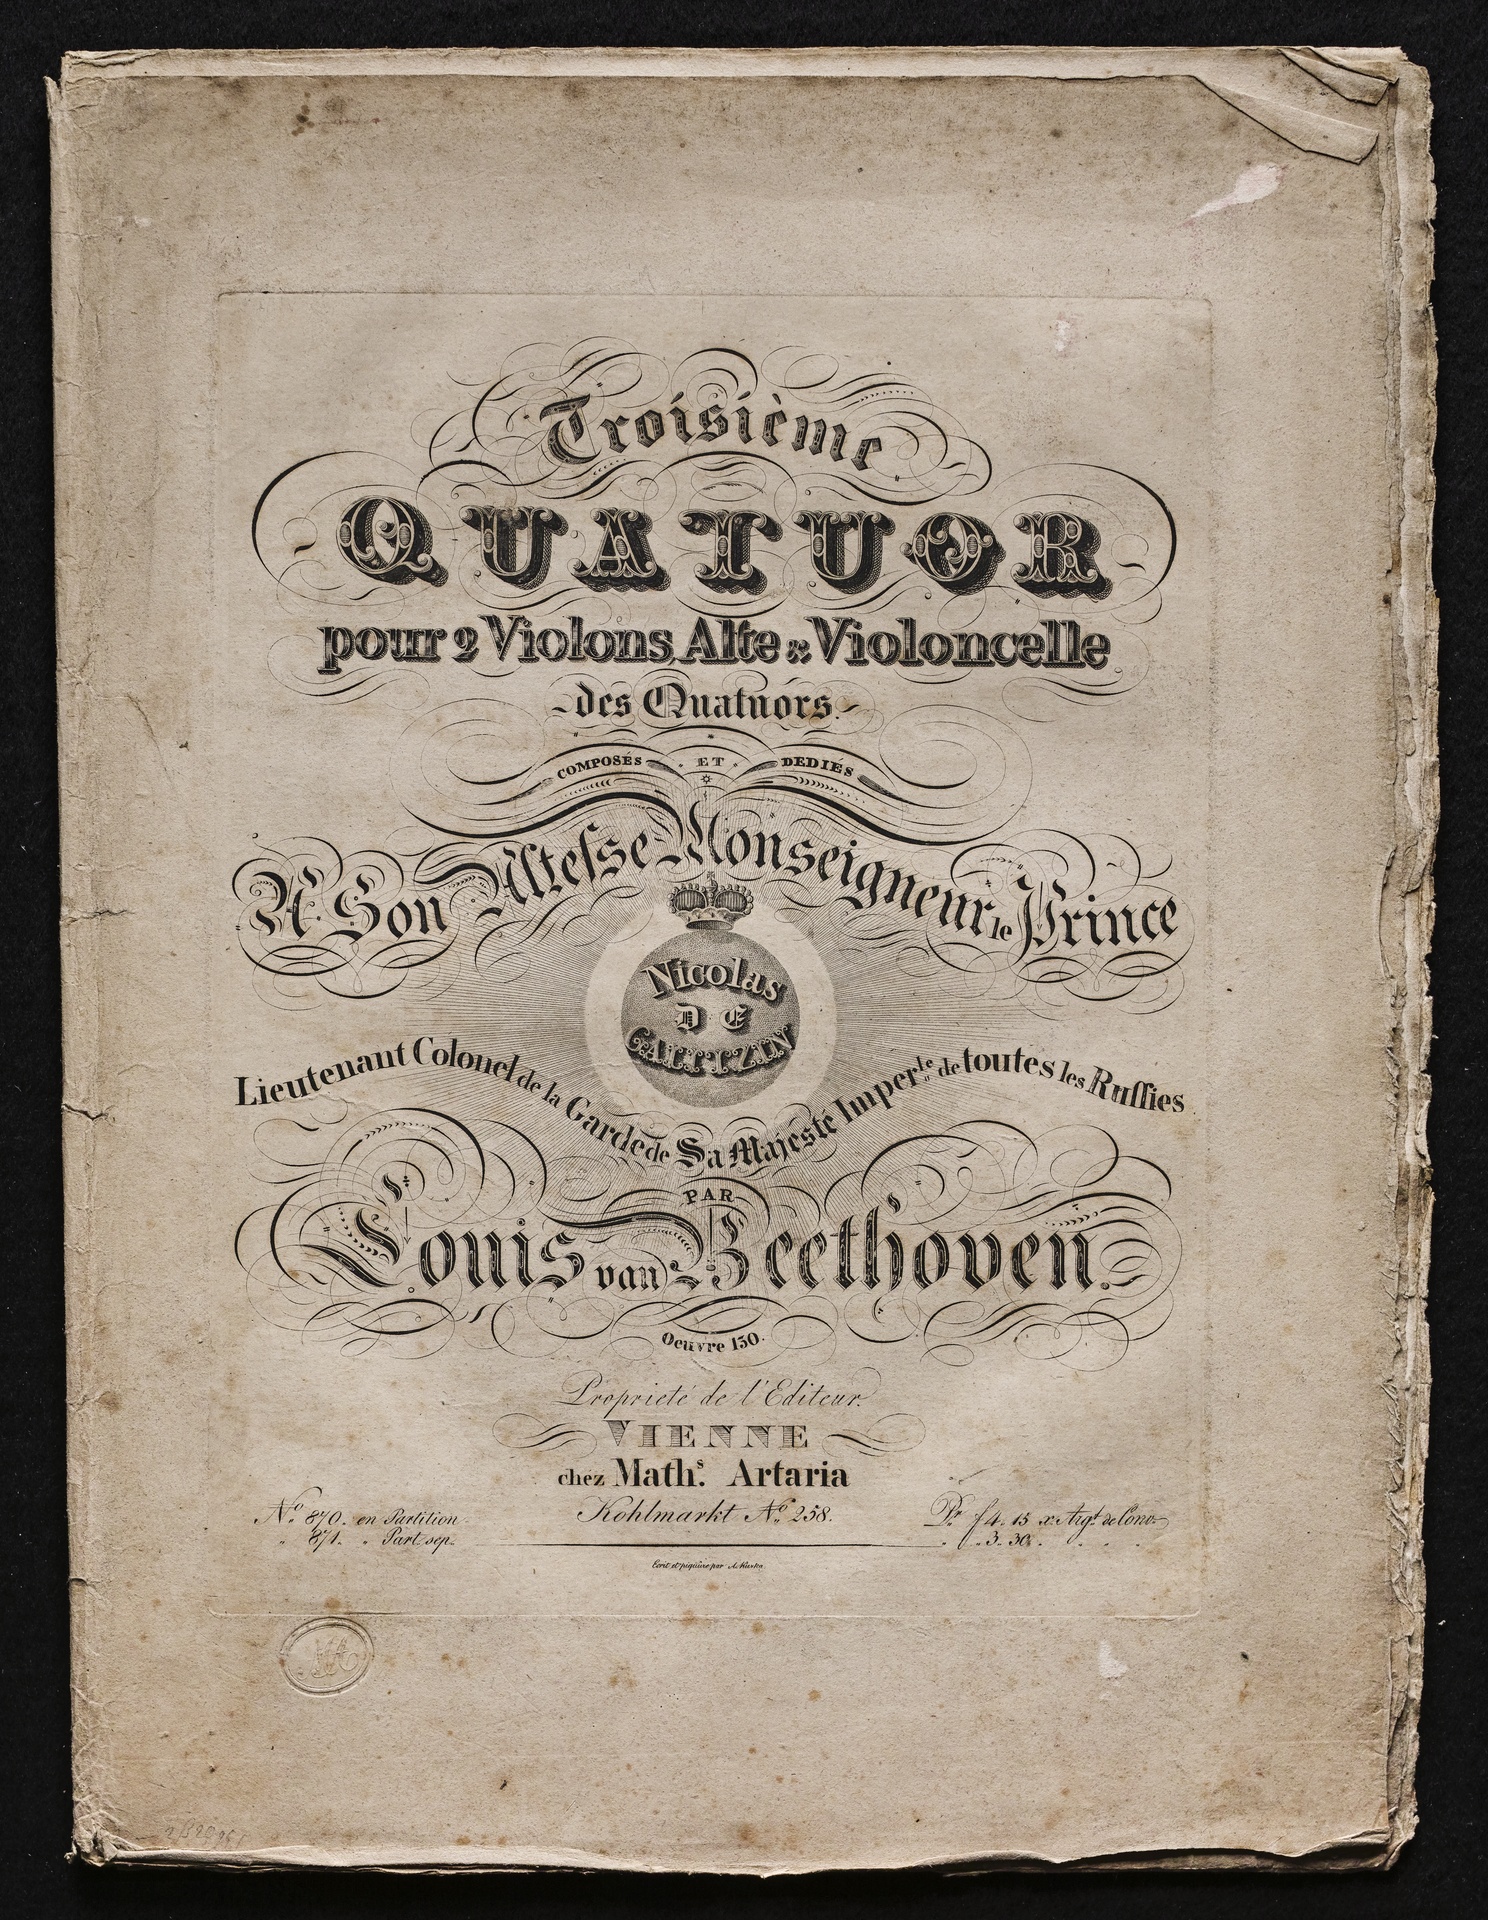 Troisième
QUATUOR
pour 2 Violons, Alte & Violoncelle
- des Quatuórs. -
COMPOSÉS ET DEDIÉS
A Son Altesse Monseigneur le Prince
Nicolas
DE
GALITZIN
Lieutenant Colonel de la Garde de Sa Majesté Imper.le de toutes les Russies
PAR
Louis van Beethoven.
Oeuvre 130.
Proprieté de l'Editeur.
VIENNE
chez Math.s Artaria
Kohlmarkt No. 258.
No. 870. en Partition
" 871. " Part. sep.
Pr. f 4. 15 x. Arg.t de Conv.
" " 3. 30.
MA